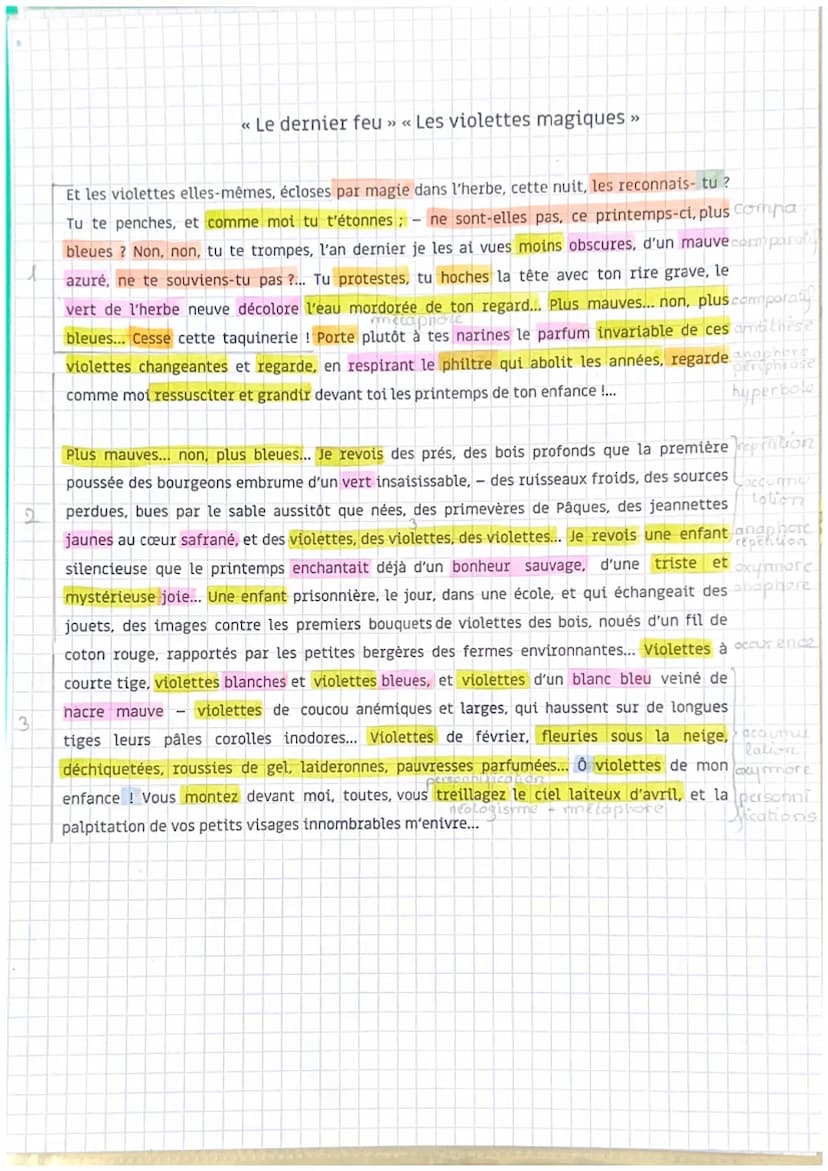 « Le dernier feu » « Les violettes magiques »
Et les violettes elles-mêmes, écloses par magie dans l'herbe, cette nuit, les reconnais- tu ?
Tu te penches, et comme moi tu t'étonnes ; – ne sont-elles pas, ce printemps-ci, plus compa
bleues ? Non, non, tu te trompes, l'an dernier je les ai vues moins obscures, d'un mauve comparatif
1
azuré, ne te souviens-tu pas ?... Tu protestes, tu hoches la tête avec ton rire grave, le
vert de l'herbe neuve décolore l'eau mordorée de ton regard... Plus mauves... non, plus comparatif
métaphore
bleues... Cesse cette taquinerie ! Porte plutôt à tes narines le parfum invariable de ces antithèse
violettes changeantes et regarde, en respirant le philtre qui abolit les années, regarde anaphore
périphrase
comme moi ressusciter et grandir devant toi les printemps de ton enfance !... hyperbole
Plus mauves... non, plus bleues... Je revois des prés, des bois profonds que la première répétition
poussée des bourgeons embrume d'un vert insaisissable, – des ruisseaux froids, des sources accumu
lation
2
perdues, bues par le sable aussitôt que nées, des primevères de Pâques, des jeannettes
3
jaunes au cœur safrané, et des violettes, des violettes, des violettes... Je revois une enfant anaphore
répétition
silencieuse que le printemps enchantait déjà d'un bonheur sauvage, d'une triste et oxymore
mystérieuse joie... Une enfant prisonnière, le jour, dans une école, et qui échangeait des anaphore
jouets, des images contre les premiers bouquets de violettes des bois, noués d'un fil de
coton rouge, rapportés par les petites bergères des fermes environnantes... Violettes à occurence
courte tige, violettes blanches et violettes bleues, et violettes d'un blanc bleu veiné de
3
nacre mauve – violettes de coucou anémiques et larges, qui haussent sur de longues
tiges leurs pâles corolles inodores... Violettes de février, fleuries sous la neige, accumu
lation
déchiquetées, roussies de gel, laideronnes, pauvresses parfumées... Ô violettes de mon oxymore
personnification
enfance ! Vous montez devant moi, toutes, vous treillagez le ciel laiteux d'avril, et la personni
fications
néologisme - métaphore
palpitation de vos petits visages innombrables m'enivre...